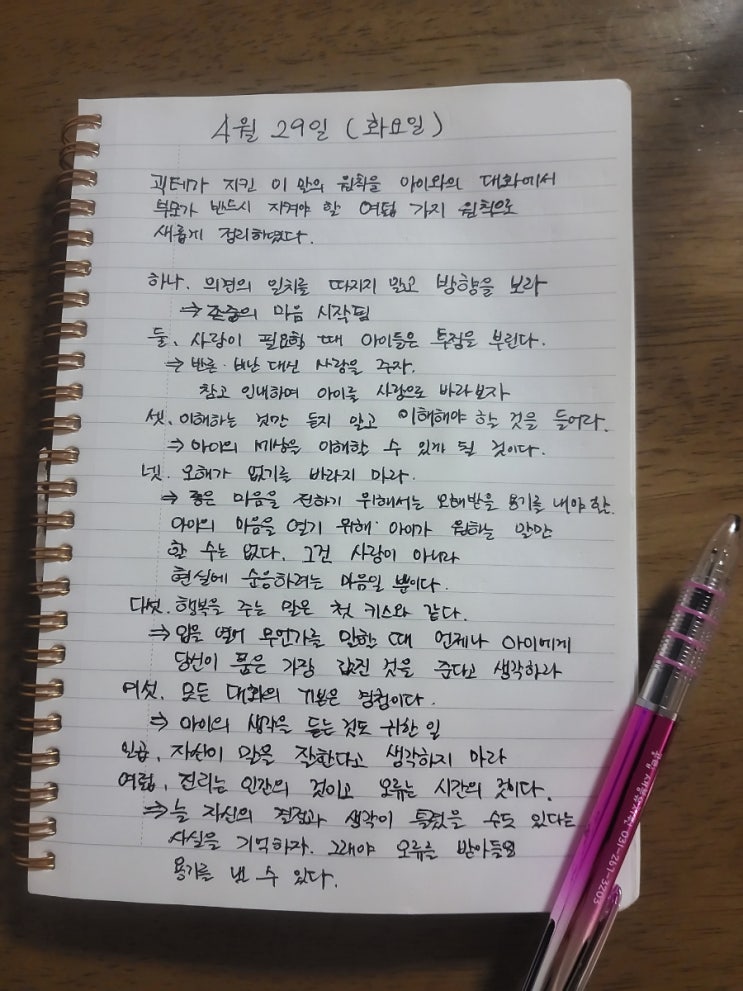 4월 29일 (화요일)
괴테가 지킨 이 말의 원칙을 아이와의 대화에서
부모가 반드시 지켜야 할 여덟 가지 원칙으로
새롭게 정리하였다.
하나. 의견의 일치를 따지지 말고 방향을 보라
⇒ 존중의 마음 시작됨
둘. 사랑이 필요할 때 아이들은 투정을 부린다.
⇒ 반론·비난 대신 사랑을 주자.
참고 인내하여 아이를 사랑으로 바라보자
셋. 이해하는 것만 듣지 말고 이해해야 할 것을 들어라.
⇒ 아이의 세상을 이해할 수 있게 될 것이다.
넷. 오해가 없기를 바라지 마라.
⇒ 좋은 마음을 전하기 위해서는 오해받을 용기를 내야 함.
아이의 마음을 열기 위해 아이가 원하는 말만
할 수는 없다. 그건 사랑이 아니라
현실에 순응하려는 마음일 뿐이다.
다섯. 행복을 주는 말은 첫 키스와 같다.
⇒ 입을 열어 무언가를 말할 때 언제나 아이에게
당신이 품은 가장 값진 것을 준다고 생각하라
여섯. 모든 대화의 기본은 경청이다.
⇒ 아이의 생각을 듣는 것도 귀한 일
일곱. 자신이 말을 잘한다고 생각하지 마라
여덟. 진리는 인간의 것이고 오류는 시간의 것이다.
⇒ 늘 자신의 결정과 생각이 틀렸을 수도 있다는
사실을 기억하자. 그래야 오류를 받아들일
용기를 낼 수 있다.
031-261-3203